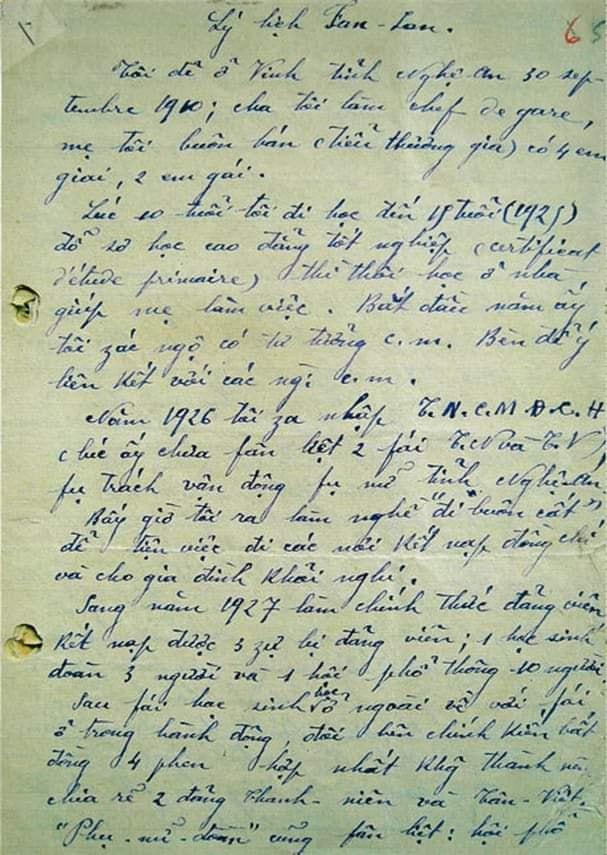 Lý lịch Fan-Lan.
65
Tôi đẻ ở Vinh tỉnh Nghệ-An 30 sep-
tembre 1910; cha tôi làm chef de gare,
mẹ tôi buôn bán (tiểu thương gia) có 4 em
giai, 2 em gái.
Lúc 10 tuổi tôi đi học đến 15 tuổi (1925)
đỗ sơ học cao đẳng tốt nghiệp (certificat
d'étude primaire) thì thôi học ở nhà
giúp mẹ làm việc. Bắt đầu năm ấy
tôi zác ngộ có tư tưởng c.m. Bèn để ý
liên kết với các ng: c.m.
Năm 1926 tôi za nhập T.N.C.M.Đ.C.H
(lúc ấy chưa fân biệt 2 fái T.N và T.V),
fụ trách vận động fụ nữ tỉnh Nghệ-An
Bấy giờ tôi ra làm nghề "đi buôn cất"
để tiện việc đi các nơi kết nạp đồng chí
và cho gia đình khỏi nghi.
Sang năm 1927 làm chính thức đảng viên
kết nạp được 3 zự bị đảng viên; 1 học sinh
đoàn 3 người và 1 hội phổ thông 10 người
Sau fái học sinh học ở ngoài về với fái
ở trong hành động, đôi bên chính kiến bất
đồng 4 phen hợp nhất khg thành nên
chia rẽ 2 đảng Thanh-niên và Tân-Việt.
"Phụ-nữ-đoàn" cũng fân biệt: hội phổ